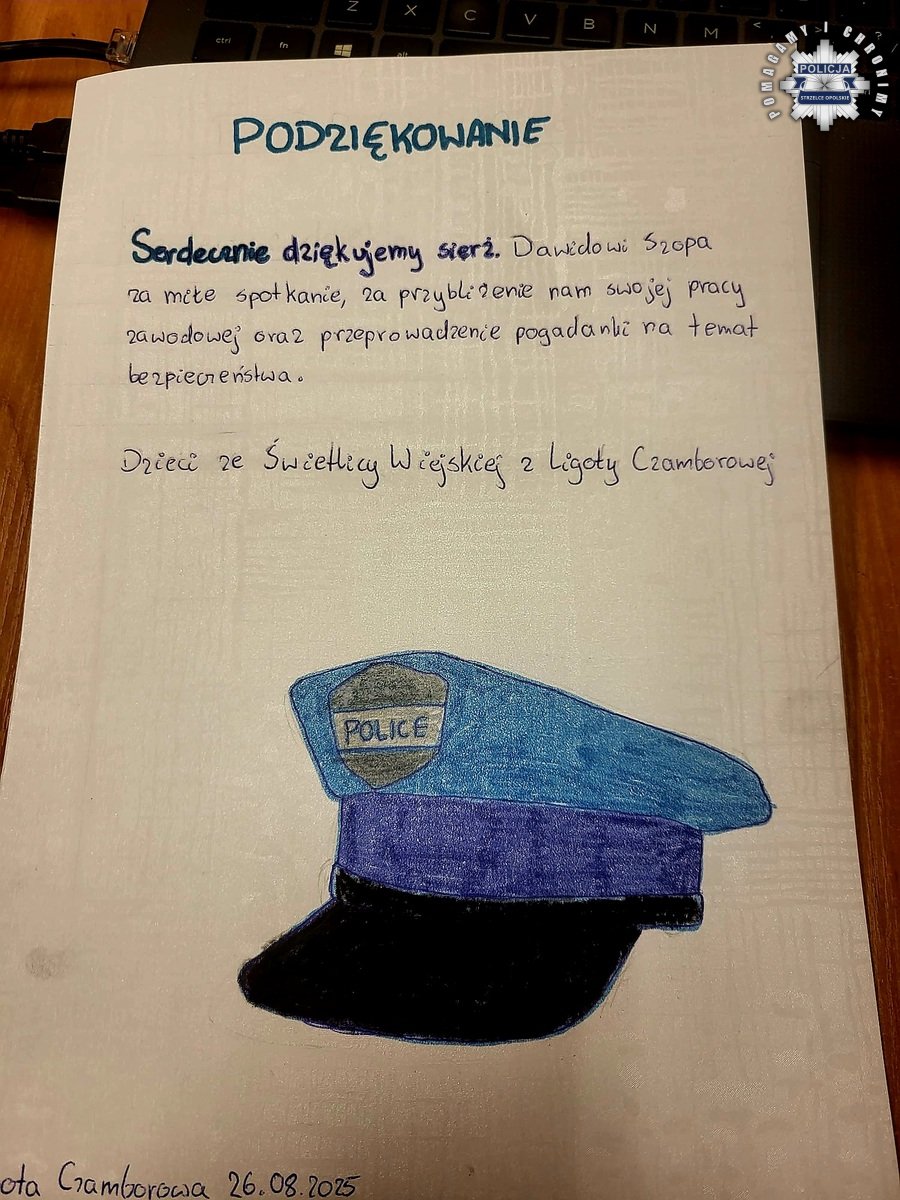 Z X C V B N M <
ctrl fn alt
POMAGAMY I CHRONIMY
POLICJA
STRZELCE OPOLSKIE
PODZIĘKOWANIE
Serdecznie dziękujemy sierż. Dawidowi Szopa
za miłe spotkanie, za przybliżenie nam swojej pracy
zawodowej oraz przeprowadzenie pogadanki na temat
bezpieczeństwa.
Dzieci ze Świetlicy Wiejskiej z Ligoty Czamborowej
POLICE
ota Czamborowa 26.08.2025